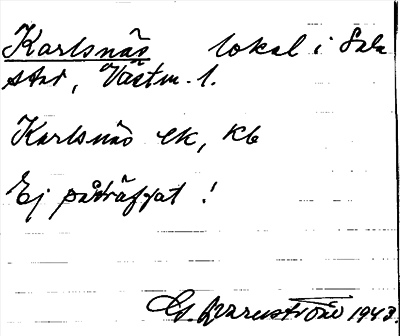 Karlsnäs lokal i Sala
stad, Västm. l.
Karlsnäs ek, kb
Ej påträffat!
G. Warnström 1943.